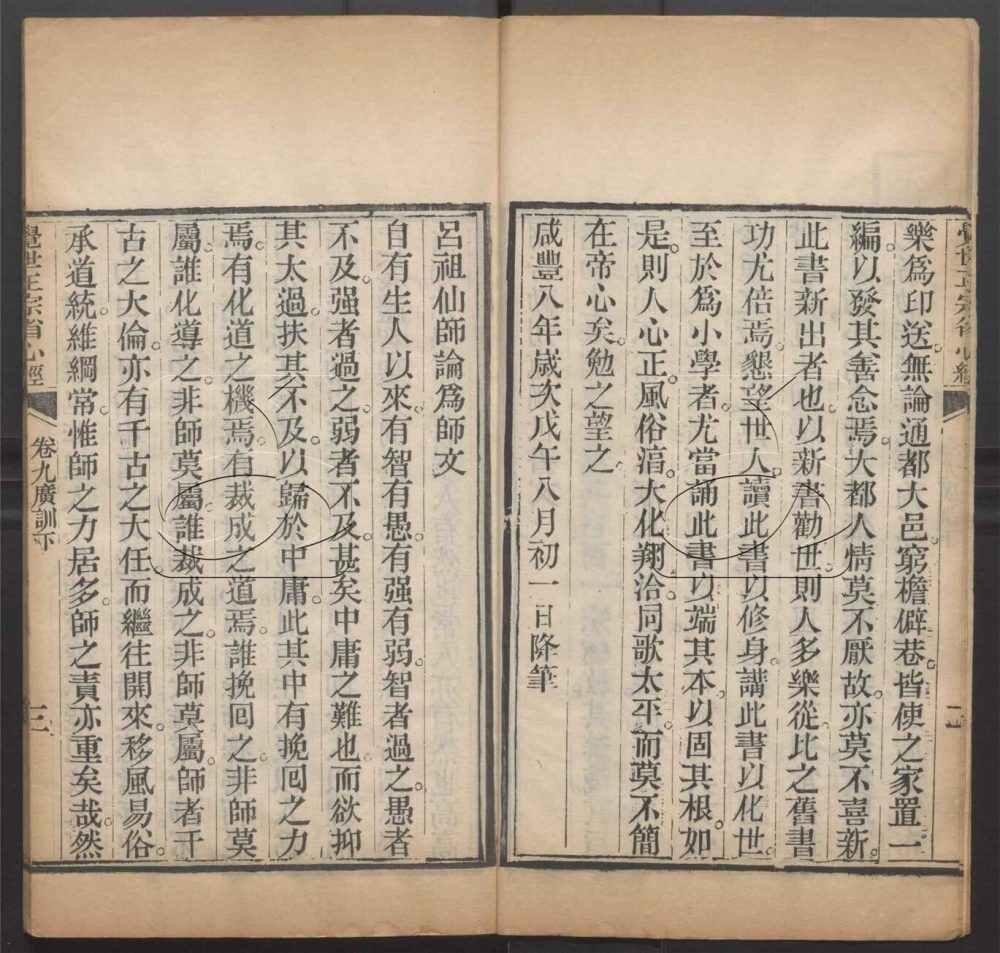 樂爲印送。無論通都大邑。窮檐僻巷。皆使之家置一
編。以發其善念焉。大都人情莫不厭故。亦莫不喜新。
此書新出者也。以新書勸世。則人多樂從。比之舊書
功尤倍焉。懇望世人。讀此書以修身。講此書以化世。
至於爲小學者。尤當誦此書。以端其本。以固其根。如
是。則人心正。風俗淯。大化翔洽。同歌太平。而莫不簡
在帝心矣。勉之望之。
咸豐八年歲次戊午八月初一日降筆
二
呂祖仙師論爲師文
自有生人以來。有智有愚。有强有弱。智者過之。愚者
不及。强者過之。弱者不及。甚矣中庸之難也。而欲抑
其太過。扶其不及。以歸於中庸。此其中有挽囘之力
焉。有化道之機焉。有裁成之道焉。誰挽囘之。非師莫
屬。誰化導之。非師莫屬。誰裁成之。非師莫屬。師者千
古之大倫。亦有千古之大任。而繼往開來。移風易俗。
承道統。維綱常。惟師之力居多。師之責亦重矣哉。然
覺世正宗省心經
卷九廣訓下
三